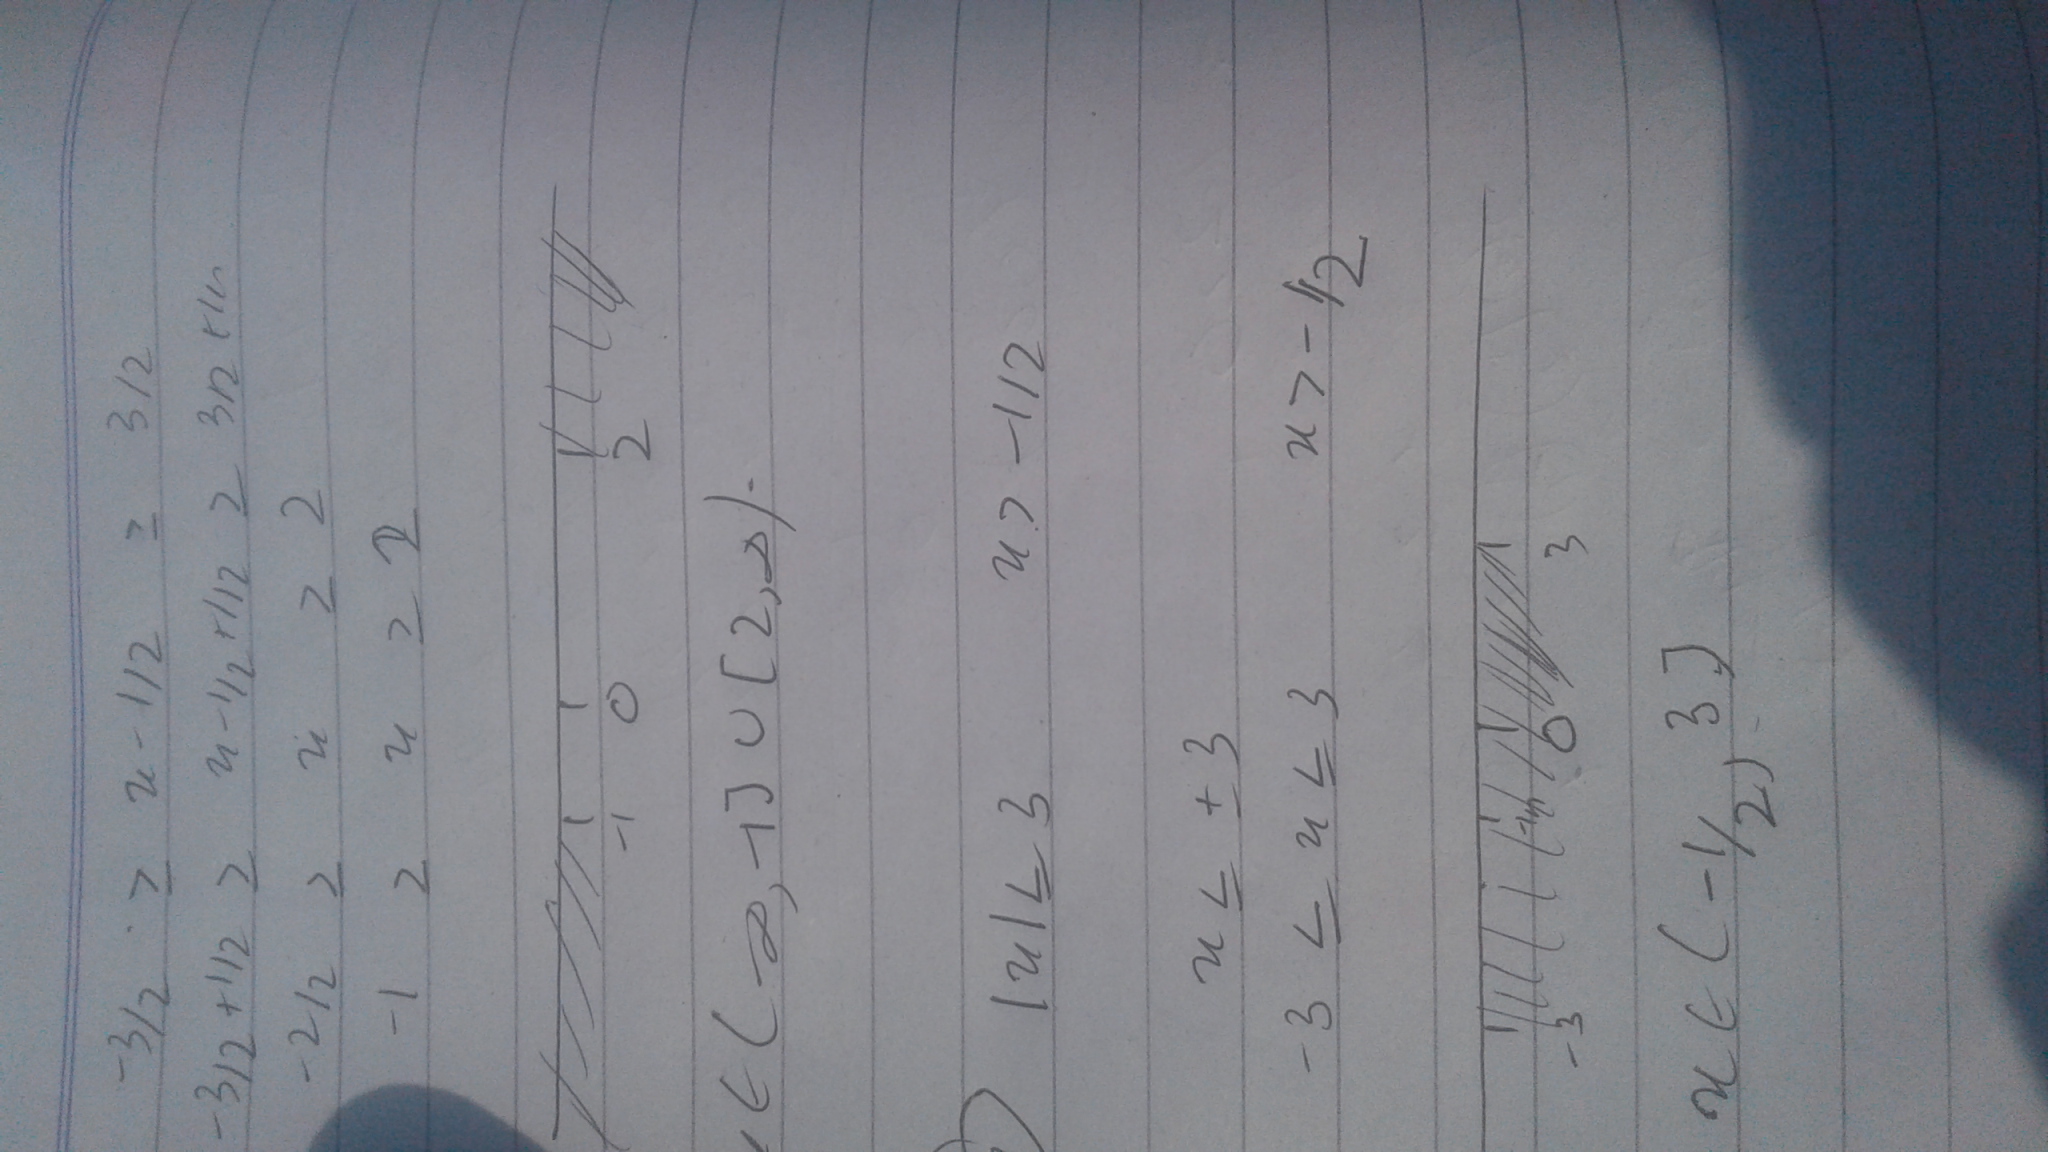 -3/2 ≥ x-1/2 ≥ 3/2
-3/2+1/2 ≥ x-1/2+1/2 ≥ 3/2+1/2
-2/2 ≥ x ≥ 2
-1 ≥ x ≥ 2
-1 0 2
x∈(-∞,-1]∪[2,∞).
|x|≤3 x>-1/2
x≤±3
-3≤x≤3 x>-1/2
-3 -1/2 0 3
x∈(-1/2,3]